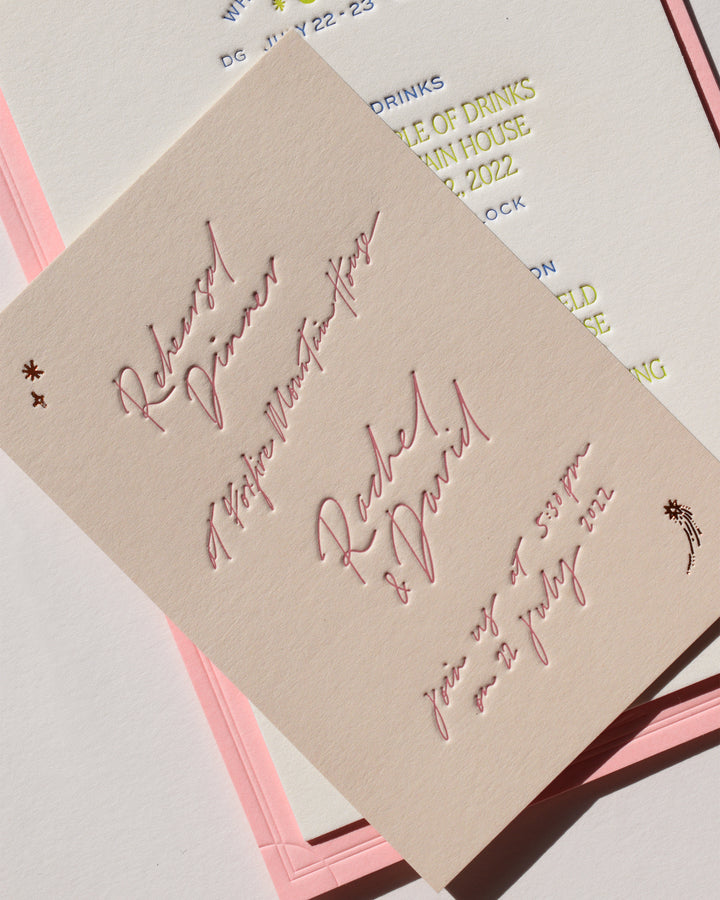 JULY 22 - 23
DG
DRINKS
OF DRINKS
HOUSE
2022
ON
Rehearsal
Dinner
at Foxfire Mountain House
Rachel
& David
join us at 5:30 pm
on 22 july 2022